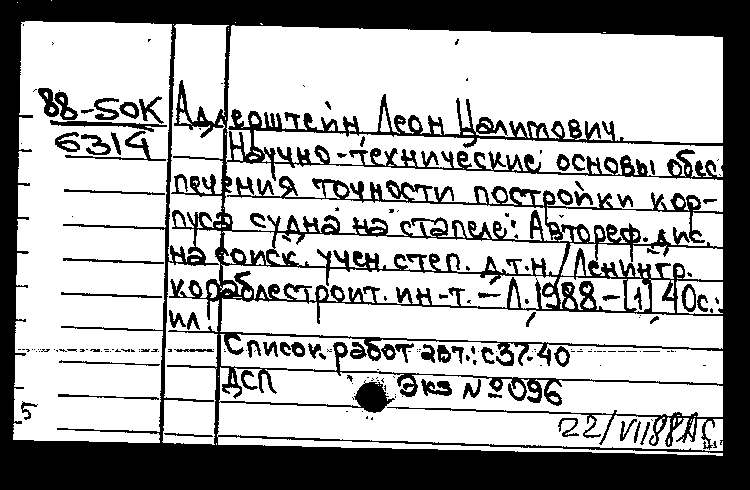 88-SOK
6314
Адлерштейн, Леон Цалитович.
Научно-технические основы обес-
печения точности постройки кор-
пуса судна на стапеле: Автореф. дис.
на соиск. учен. степ. д.т.н./Ленингр.
кораблестроит. ин-т. – Л., 1988. – [1], 40с.:
ил.
Список работ авт.: с37-40
ДСП Экз №096
5
22/VII88АС